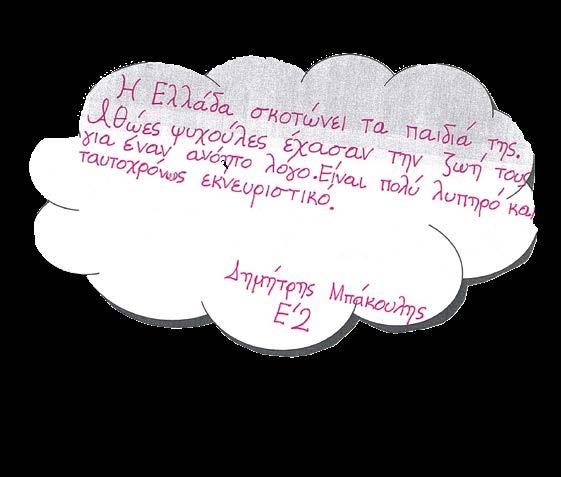 Η Ελλάδα σκοτώνει τα παιδιά της.
Αθώες ψυχούλες έχασαν την ζωή τους
για έναν ανόητο λόγο. Είναι πολύ λυπηρό και
ταυτοχρόνως εκνευριστικό.
Δημήτρης Μπάκουλης
Ε'2